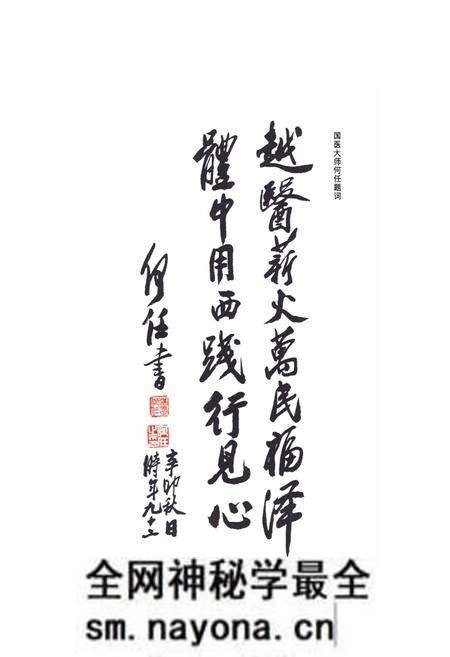 国医大师何任题词
越醫薪火萬民福泽
體中用西践行見心
何任書
辛卯秋日
時年九十二
全网神秘学最全
sm.nayona.cn